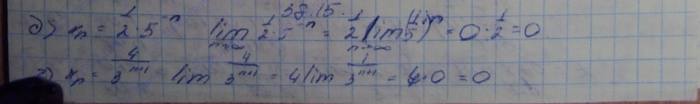 38.15.
д) xₙ = 1/2 · 5⁻ⁿ lim n→∞ 1/2 · 5⁻ⁿ = 1/2 lim n→∞ (1/5)ⁿ = 0 · 1/2 = 0
xₙ = 4/3ⁿ⁺¹ lim 4/3ⁿ⁺¹ = 4 lim 1/3ⁿ⁺¹ = 4·0 = 0